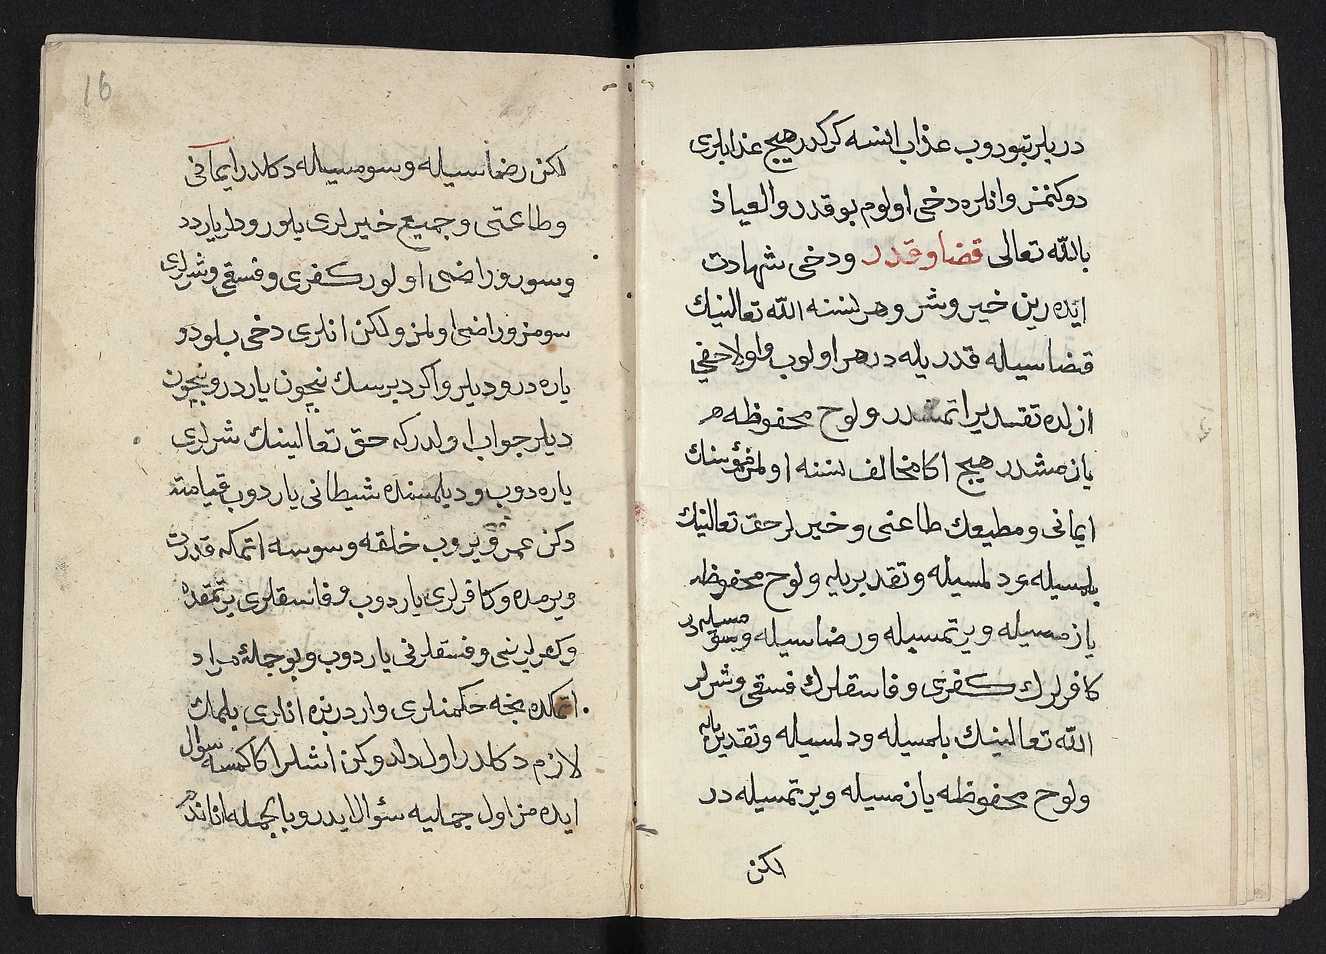 دريلر تيودوب عذاب ايسه كركدر هيچ عذابلرى
دوكنمز وانلره دخى اولوم يوقدر والعياذ
بالله تعالى قضا وقدر ودخى شهادت
ايده رين خير وشر وهر نسنه الله تعالينك
قضاسيله قدريله در هر اولوب واولاجغى
ازلده تقدير اتمشدر ولوح محفوظه
يازمشدر هيچ اكا مخالف نسنه اولمز مؤمنك
ايمانى ومطيعك طاعتى وخيرلر حق تعالينك
بلمسيله ودلمسيله وتقديريله ولوح محفوظه
يازمسيله ويرتمسيله ورضاسيله وسومسيله در
كافرلرك كفرى وفاسقلرك فسقى وشرلر
الله تعالينك بلمسيله ودلمسيله وتقديريله
ولوح محفوظه يازمسيله ويرتمسيله در
لكن
16
لكن رضاسيله وسومسيله دكلدر ايمانى
وطاعتى وجميع خيرلرى بلور ودلر يارادر
وسور وراضى اولور كفرى وفسقى وشرلرى
سومز وراضى اولمز ولكن انلرى دخى بلو دو
ياره در وديلر واكر ديرسك نيچون ياردر ونيچون
ديلر جواب اولدركه حق تعالينك شرلرى
ياره دوب وديلمسنده شيطانى ياردوب قيامته
دكن عمر ويروب خلقه وسوسه اتمكه قدرت
ويرمده وكافرلرى ياردوب وفاسقلرى يرتمقده
وكفرلرينى وفسقلرنى ياردوب وبو جمله مراد
اتمكده نجه حكمتلرى واردر بزه انلرى بلمك
لازم دكلدر اولدلدوكن اشلر اكا كمسه سوال
ايده مز اول جمليه سؤال ايدر وبا بجمله